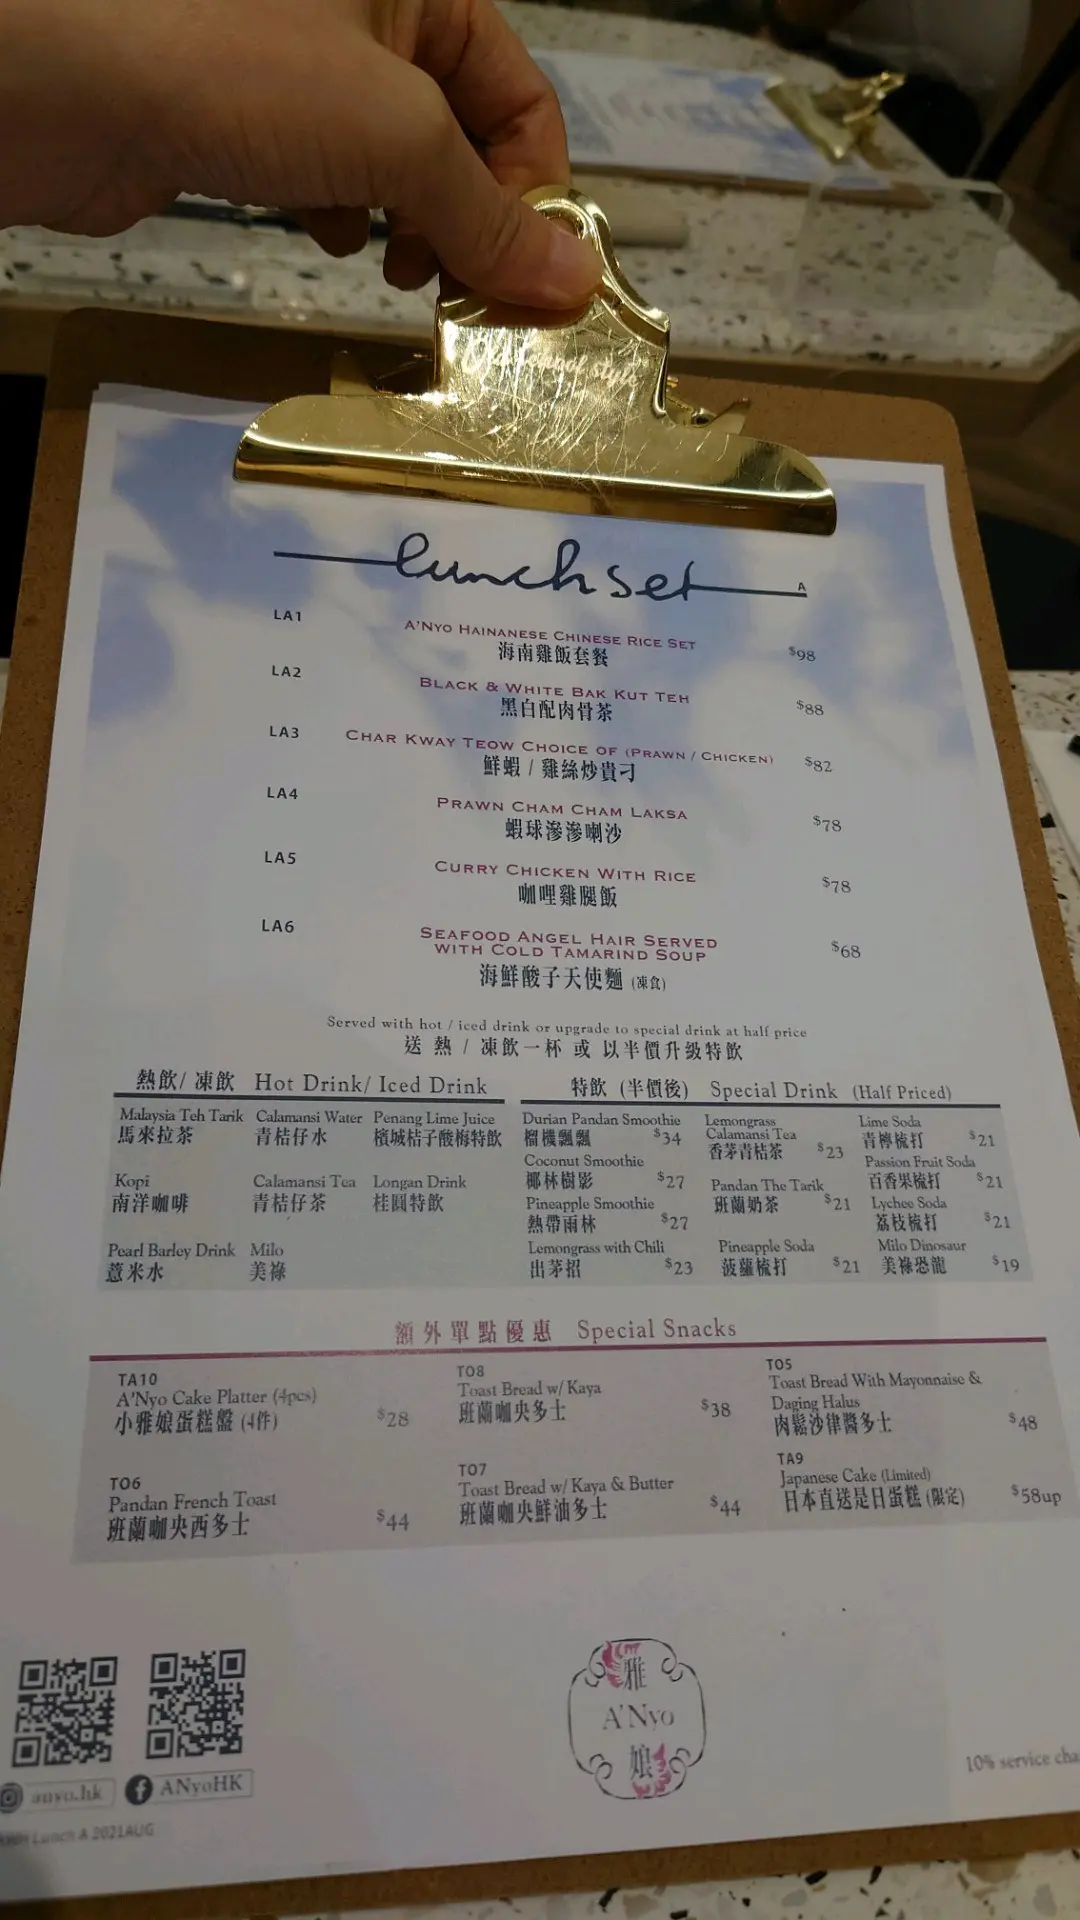 Old school style
lunch set A
LA1 A'NYO HAINANESE CHINESE RICE SET $98
海南雞飯套餐
LA2 BLACK & WHITE BAK KUT TEH $88
黑白配肉骨茶
LA3 CHAR KWAY TEOW CHOICE OF (PRAWN / CHICKEN) $82
鮮蝦 / 雞絲炒貴刁
LA4 PRAWN CHAM CHAM LAKSA $78
蝦球滲滲喇沙
LA5 CURRY CHICKEN WITH RICE $78
咖哩雞腿飯
LA6 SEAFOOD ANGEL HAIR SERVED $68
WITH COLD TAMARIND SOUP
海鮮酸子天使麵 (凍食)
Served with hot / iced drink or upgrade to special drink at half price
送 熱 / 凍飲一杯 或 以半價升級特飲
熱飲/ 凍飲 Hot Drink/ Iced Drink
Malaysia Teh Tarik Calamansi Water Penang Lime Juice
馬來拉茶 青桔仔水 檳城桔子酸梅特飲
Kopi Calamansi Tea Longan Drink
南洋咖啡 青桔仔茶 桂圓特飲
Pearl Barley Drink Milo
薏米水 美祿
特飲 (半價後) Special Drink (Half Priced)
Durian Pandan Smoothie
榴槤飄飄 $34
Coconut Smoothie
椰林樹影 $27
Pineapple Smoothie
熱帶雨林 $27
Lemongrass with Chili
出茅招 $23
Lemongrass
Calamansi Tea
香茅青桔茶 $23
Pandan The Tarik
班蘭奶茶 $21
Pineapple Soda
菠蘿梳打 $21
Lime Soda
青檸梳打 $21
Passion Fruit Soda
百香果梳打 $21
Lychee Soda
荔枝梳打 $21
Milo Dinosaur
美祿恐龍 $19
額外單點優惠 Special Snacks
TA10
A'Nyo Cake Platter (4pcs)
小雅娘蛋糕盤 (4件) $28
TO8
Toast Bread w/ Kaya
班蘭咖央多士 $38
TO5
Toast Bread With Mayonnaise &
Daging Halus
肉鬆沙律醬多士 $48
TO6
Pandan French Toast
班蘭咖央西多士 $44
TO7
Toast Bread w/ Kaya & Butter
班蘭咖央鮮油多士 $44
TA9
Japanese Cake (Limited)
日本直送是日蛋糕 (限定) $58up
雅
A'Nyo
娘
10% service cha
anyo.hk ANyoHK
Lunch A 2021AUG